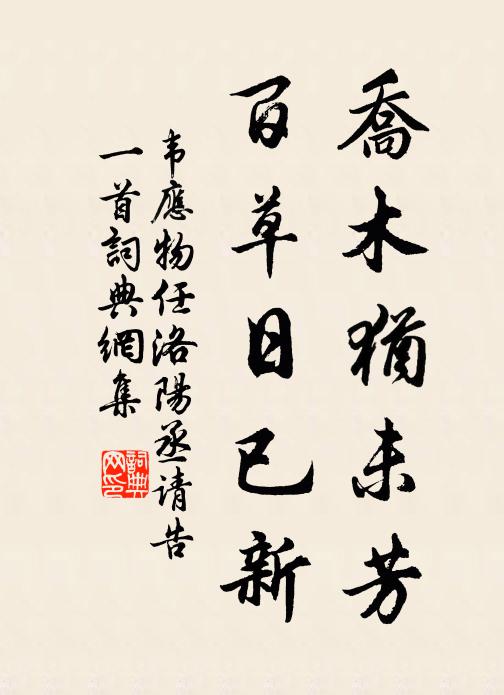 喬木猶未芳
百草日已新
韦應物任洛陽丞请告
一首詞典網集
詞典网印